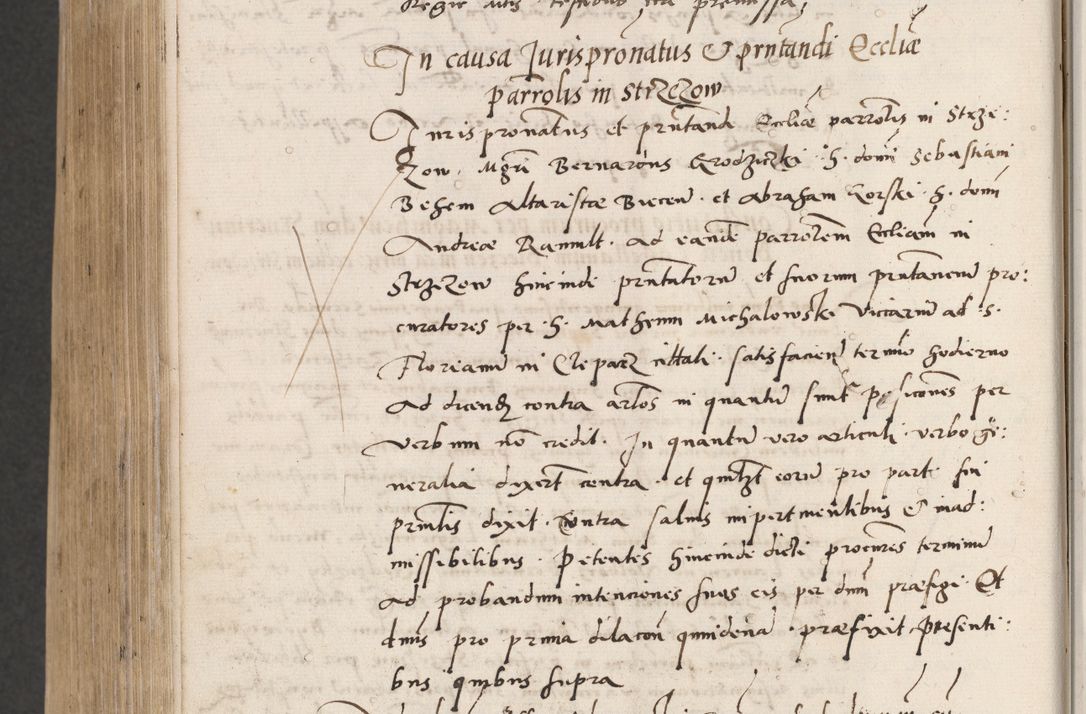 Regie Mtis testibus ita premissa
In causa Jurispronatus & prntandi Eccliæ
parrolis in Strzezow
Jurispronatus et prntandi Eccliæ parrolis in Strze:
zow. Mgri Bernardus Grodziczki h. domi Sebastiani
Behem Altaristæ Biecen. et Abraham Gorski h. domi
Andreæ Rammlt. ad eande parrolem Eccliam in
Strzezow hincindi prntatoru et suorum prntaneru pro:
curatores per h. Matheum Michalowski Vicariu ad S.
Florianu in Cleparz cittati. satisfacien termio hodierno
Ad dicend contra artlos in quantu sunt posicones per
verbum no credit. In quantu vero articuli verbo ge:
neralia dixert contra. et quilzt eoru pro parte sui
prinlis dixit contra salvis impertinentibus & inad:
missibilibus. Petentes hincinde dicti procures terminu
ad probandum intenciones suas eis per dnm præfigi. Et
dnus pro prima dilacon quindena præfixit. Presenti:
bus quibus supra